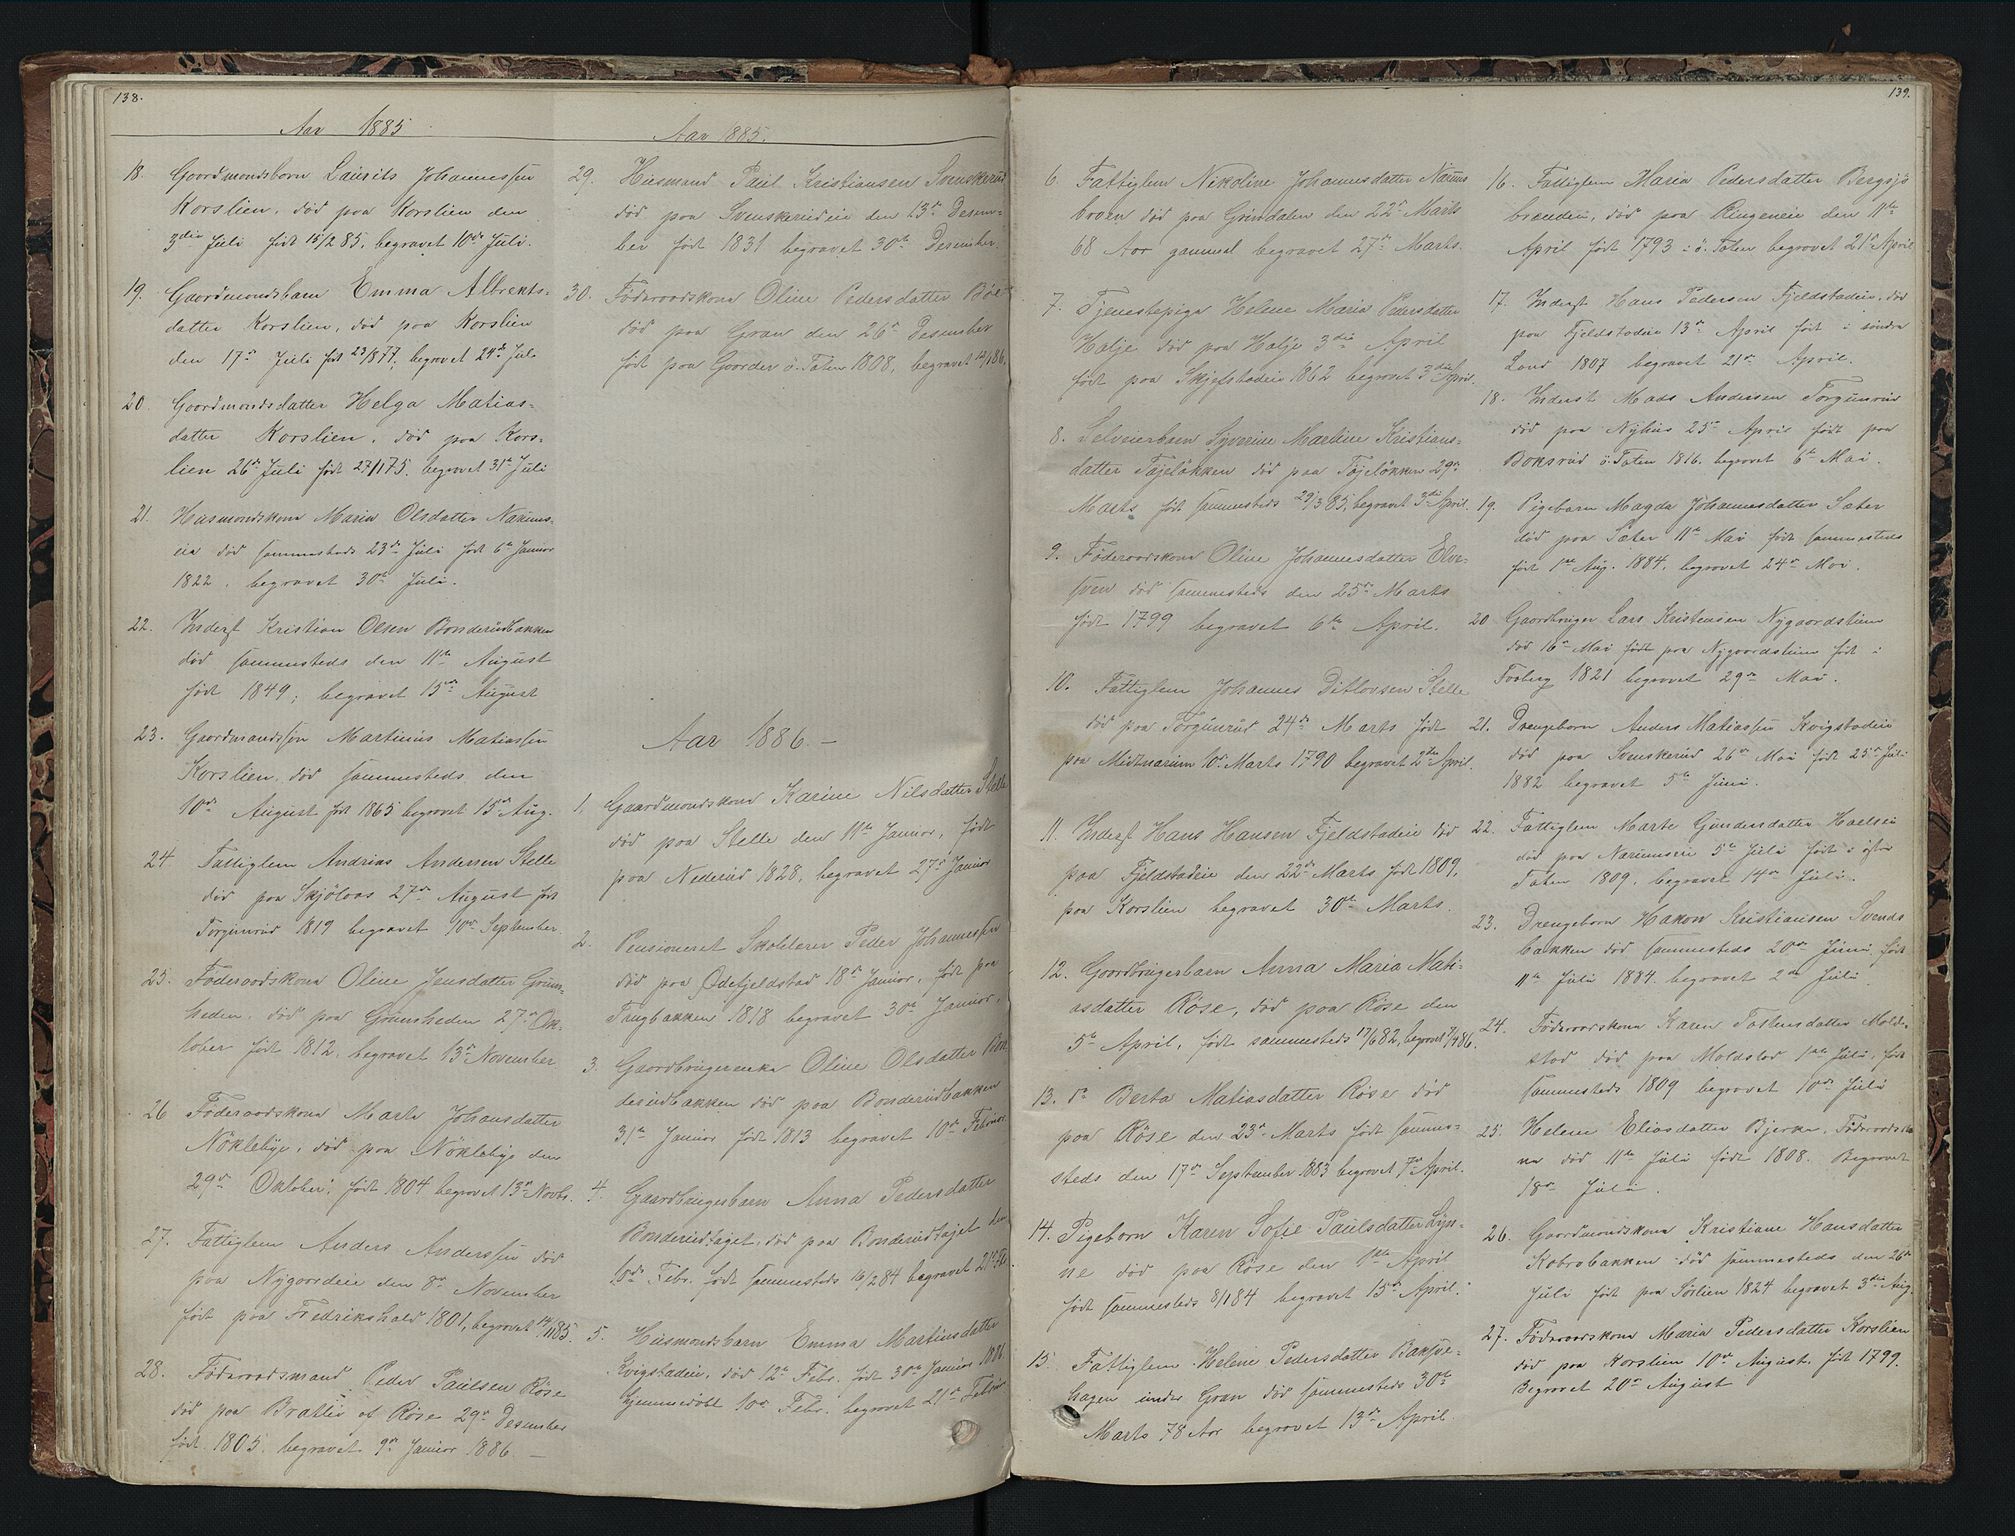 138.
Aar 1885
18. Gaardmandsbarn Laurits Johannessen
Korslien, død paa Korslien den
3die Juli født 15/2 85, begravet 10de Juli.
19. Gaardmandsbarn Emma Albrekts-
datter Korslien, død paa Korslien
den 17de Juli født 1877, begravet 24de Juli
20. Gaardmandsdatter Helga Matias-
datter Korslien, død paa Kors-
lien 26de Juli født 75, begravet 31te Juli
21. Husmandskone Maria Olsdatter Narums-
eie død sammesteds 23de Juli født 6te Januar
1822, begravet 30te Juli.
22. Inderst Kristian Olsen Bonderudbakken
død sammesteds den 11te August
født 1849; begravet 15de August
23. Gaardmandssøn Martinus Matiassen
Korslien, død sammesteds den
10de August født 1865 begravet 15de Aug.
24 Fattiglem Andrias Andersen Stelle
død paa Skjølaas 27de August født
Torgunrud 1819 begravet 10de September.
25. Føderaadskone Oline Jensdatter Grøns-
heden, død paa Grønsheden 27de Ok-
tober født 1812, begravet 13de November
26 Føderaadskone Marte Johansdatter
Nøklebye, død paa Nøklebye den
29de Oktober, født 1804 begravet 13de Novbr.
27. Fattiglem Anders Anderssen død
paa Nygaardeie den 8de November
født paa Fredrikshald 1801, begravet 14/11 85.
28. Føderaadsmand Peder Paulsen Røse
død paa Bratlie af Røse 29de Desember
født 1805. begravet 9de Januar 1886 —
Aar 1885.
29. Husmand Paul Kristiansen Svenskerud
død paa Svenskerudeie den 13de Desem-
ber født 1831 begravet 30te Desember.
30. Føderaadskone Oline Pedersdatter Bøe
død paa Gran den 26de Desember
født paa Gaarder ö. Toten 1808, begravet 12/1 86.
Aar 1886. —
1. Gaardmandskone Karine Nilsdatter Stelle
død paa Stelle den 11te Januar, født
paa Nederud 1828, begravet 27de Januar
2. Pensioneret Skolelerer Peder Johannessen
død paa Ødefjeldstad 18de Januar, født paa
Trugbakken 1818 begravet 30te Januar.
3. Gaardbrugerenke Oline Olsdatter Bon-
derudbakken død paa Bonderudbakken
31te Januar født 1813 begravet 10de Februar
4. Gaardbrugesbarn Anna Pedersdatter
Bonderudhaget, død paa Bonderudhaget den
10de Febr. født sammesteds 16/2 84 begravet 21de Fe
5. Husmandsbarn Emma Martinsdatter
Kvigstadeie, død 12te Febr. født 30te Januar 1886
hjemmedøbt 10de Febr. begravet 21de Februar
139.
6. Fattiglem Nikoline Johannesdatter Narums
braaen død paa Grindalen den 22de Marts
68 Aar gammel begravet 27de Marts.
7. Tjenestepige Helene Maria Pedersdatter
Holje død paa Holje 3die April
født paa Skjefstadeie 1862 begravet 3die April.
8. Selveierbarn Syverine Martine Kristians-
datter Tøjeløkken død paa Tøjeløkken 29de
Marts født sammesteds 29/3 85, begravet 3die April.
9. Føderaadskone Oline Johannesdatter Elve-
sven død sammesteds den 25de Marts
født 1799 begravet 6te April.
10. Fattiglem Johannes Ditlovsen Stelle
død paa Torgunrud 24de Marts født
paa Midtnarum 10de Marts 1790 begravet 2den April.
11. Inderst Hans Hansen Fjeldstadeie død
paa Fjeldstadeie den 22de Marts født 1809,
paa Korslien begravet 30te Marts.
12. Gaardbrugerbarn Anna Maria Mati-
asdatter Røse, død paa Røse den
5te April, født sammesteds 17/6 82, begravet 7/4 86.
13. do Berta Matiasdatter Røse død
paa Røse den 23de Marts født sammes-
steds den 17de September 1883 begravet 7de April.
14. Pigebarn Karen Sofie Paulsdatter Lyn-
ne død paa Røse den 1ste April
født sammesteds 8/1 84 begravet 15de April.
15. Fattiglem Helene Pedersdatter Bakje-
hagen under Gran død sammesteds 30te
Marts 78 Aar begravet 13de April.
16. Fattiglem Maria Pedersdatter Bergsjø
brænden, død paa Ringeneie den 11te
April født 1793 i ö. Toten begravet 21de April
17. Inderst Hans Pedersen Fjeldstadeie, død
paa Fjeldstadeie 13de April født i søndre
Land 1807 begravet 21de April.
18. Inderst Mads Andersen Torgunrud
død paa Nyhus 25de April født paa
Boksrud ö. Toten 1816. begravet 6te Mai.
19. Pigebarn Magda Johannesdatter Sæter
død paa Sæter 11te Mai født sammesteds
født 1ste Aug. 1884, begravet 24de Mai.
20 Gaardbruger Lars Kristensen Nygaardstuen
død 16de Mai født paa Nygaardstuen født i
Torberg 1821 begravet 29de Mai.
21. Drengebarn Anders Matiassen Kvigstadeie
død paa Svenskerud 26de Mai født 25de Juli
1882 begravet 5te Juni.
22. Fattiglem Marte Gundersdatter Haelsei
død paa Narumseie 5te Juli født i østre
Toten 1809, begravet 14de Juli.
23. Drengebarn Hakon Kristiansen Svends
bakken død sammesteds 20de Juni født
11te Juli 1884. begravet 2den Juli
24. Føderaadskone Karen Tostensdatter Mold-
stad død paa Moldstad 1ste Juli, født
sammesteds 1809 begravet 10de Juli
25. Helene Eliasdatter Bjerke, Føderaadsko
ne død 11te Juli født 1808. Begravet
18de Juli.
26. Gaardmandskone Kristiane Hansdatter
Kobrobakken død sammesteds den 26de
Juli født paa Sørlien 1824 begravet 3die Aug.
27. Føderaadskone Maria Pedersdatter Korslien
død paa Korslien 10de August født 1799.
Begravet 20de August